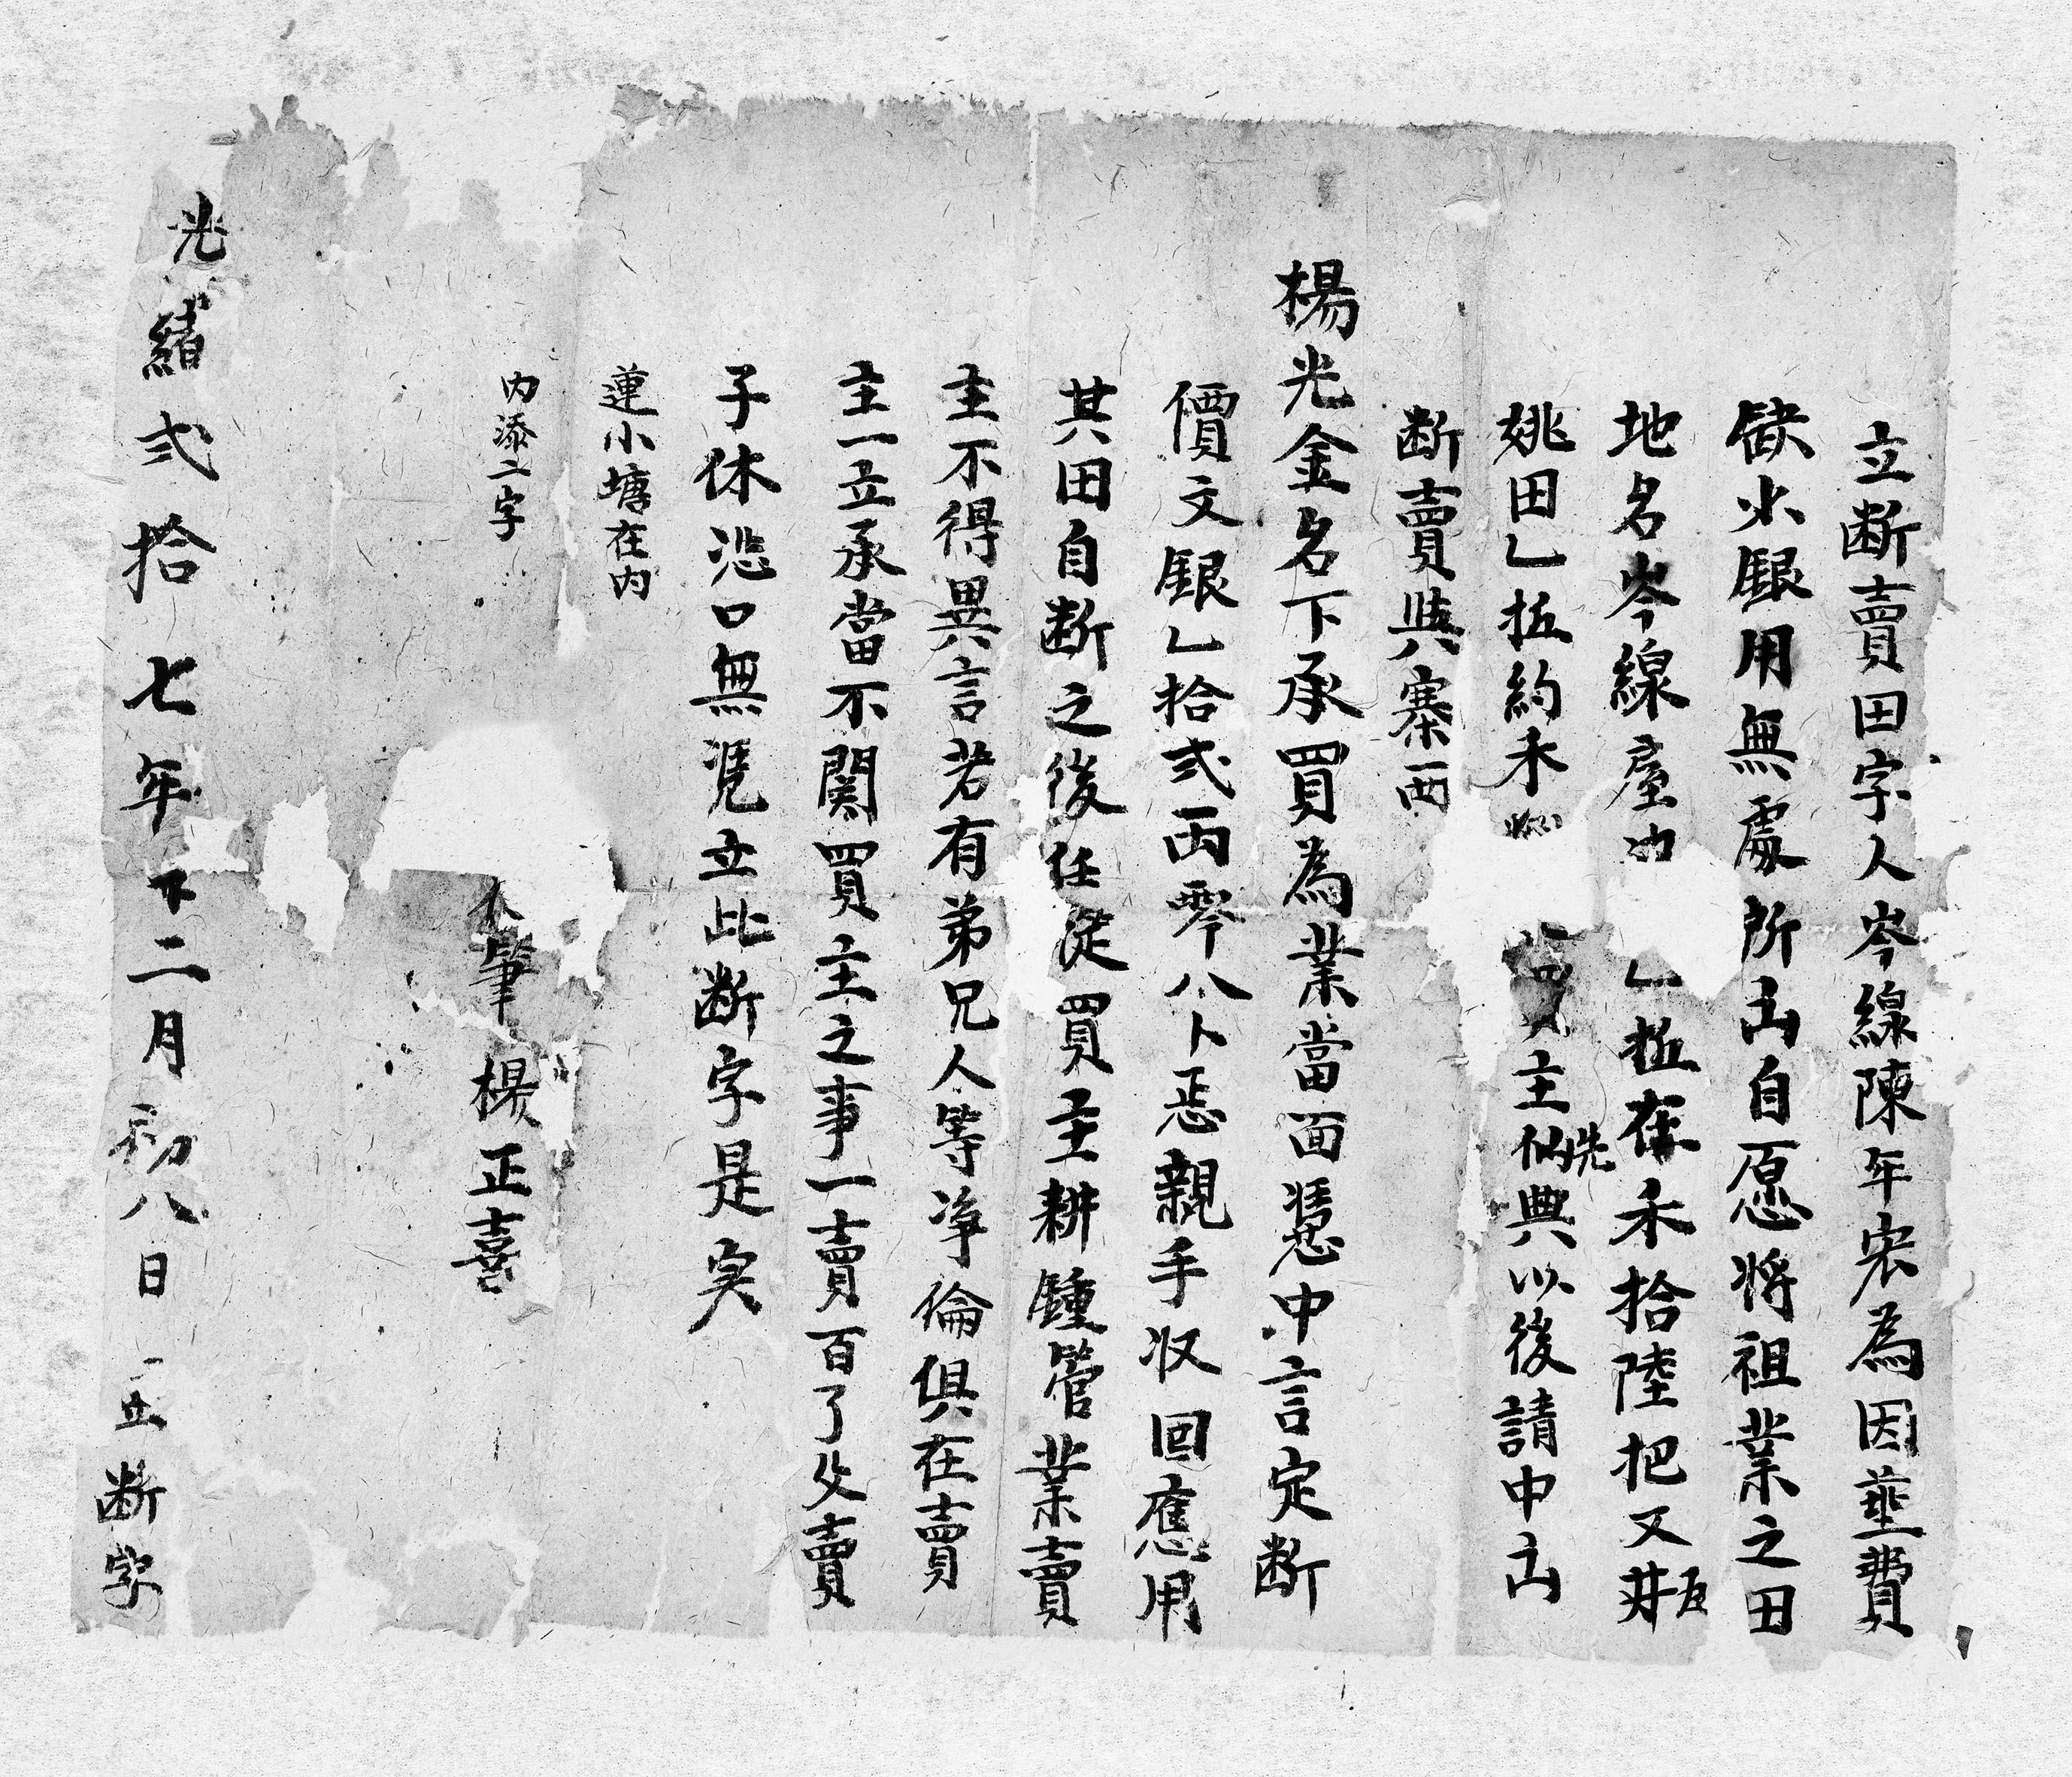 立断賣田字人岑線陳年宏為因塟費
缺少銀用無處所出自愿將祖業之田
地名岑線屋 乚坵在禾拾陸把又井辰
姚田乚坵約禾 買主先仏典以後請中出
断賣與寨西
楊光金名下承買為業當面慿中言定断
價文銀乚拾弍両零八卜恁親手収回應用
其田自断之後任從買主耕鍾管業賣
主不得異言若有弟兄人等凈倫俱在賣
主一立承當不関買主之事一賣百了父賣
子休恐口無凴立此断字是実
蓮小塘在内
内添二字
筆楊正喜
光緒弍拾七年下二月初八日立断字